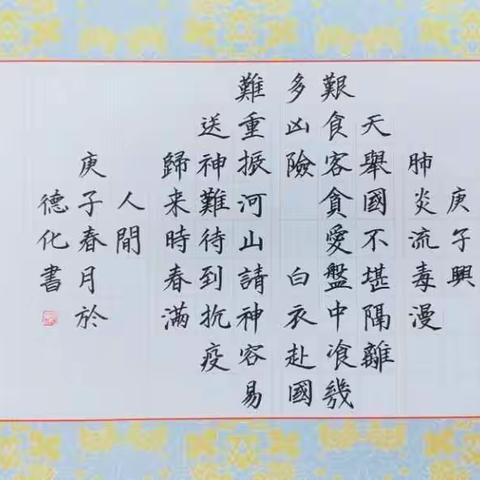 庚子興
肺炎流毒漫
天舉國不堪隔離
艱食客貪愛盤中飡幾
多凶險 白衣赴國
難重振河山請神容易
送神難待到抗疫
歸来時春滿
人間
庚子春月於
德化書